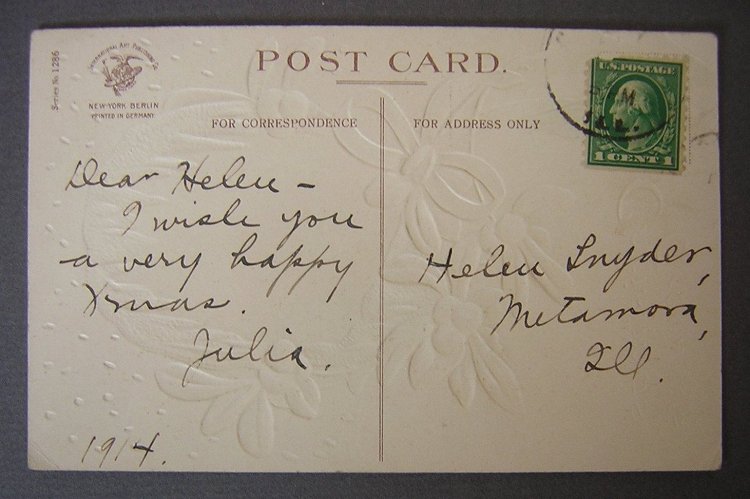 Series No. 1286
International Art Publishing Co.
NEW-YORK BERLIN
PRINTED IN GERMANY
POST CARD.
U.S. POSTAGE
1 CENT 1
ILL.
FOR CORRESPONDENCE
FOR ADDRESS ONLY
Dear Helen –
I wish you
a very happy
Xmas.
Julia.
1914.
Helen Snyder,
Metamora,
Ill.